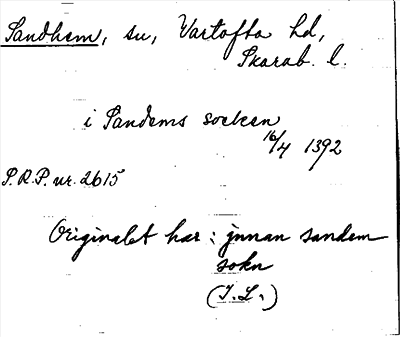 Sandhem, sn, Vartofta hd,
Skarab. l.
i Sandems socken
16/4 1392
S.R.P. nr. 2615
Originalet har: jnnan sandem
sokn
(I. L.)